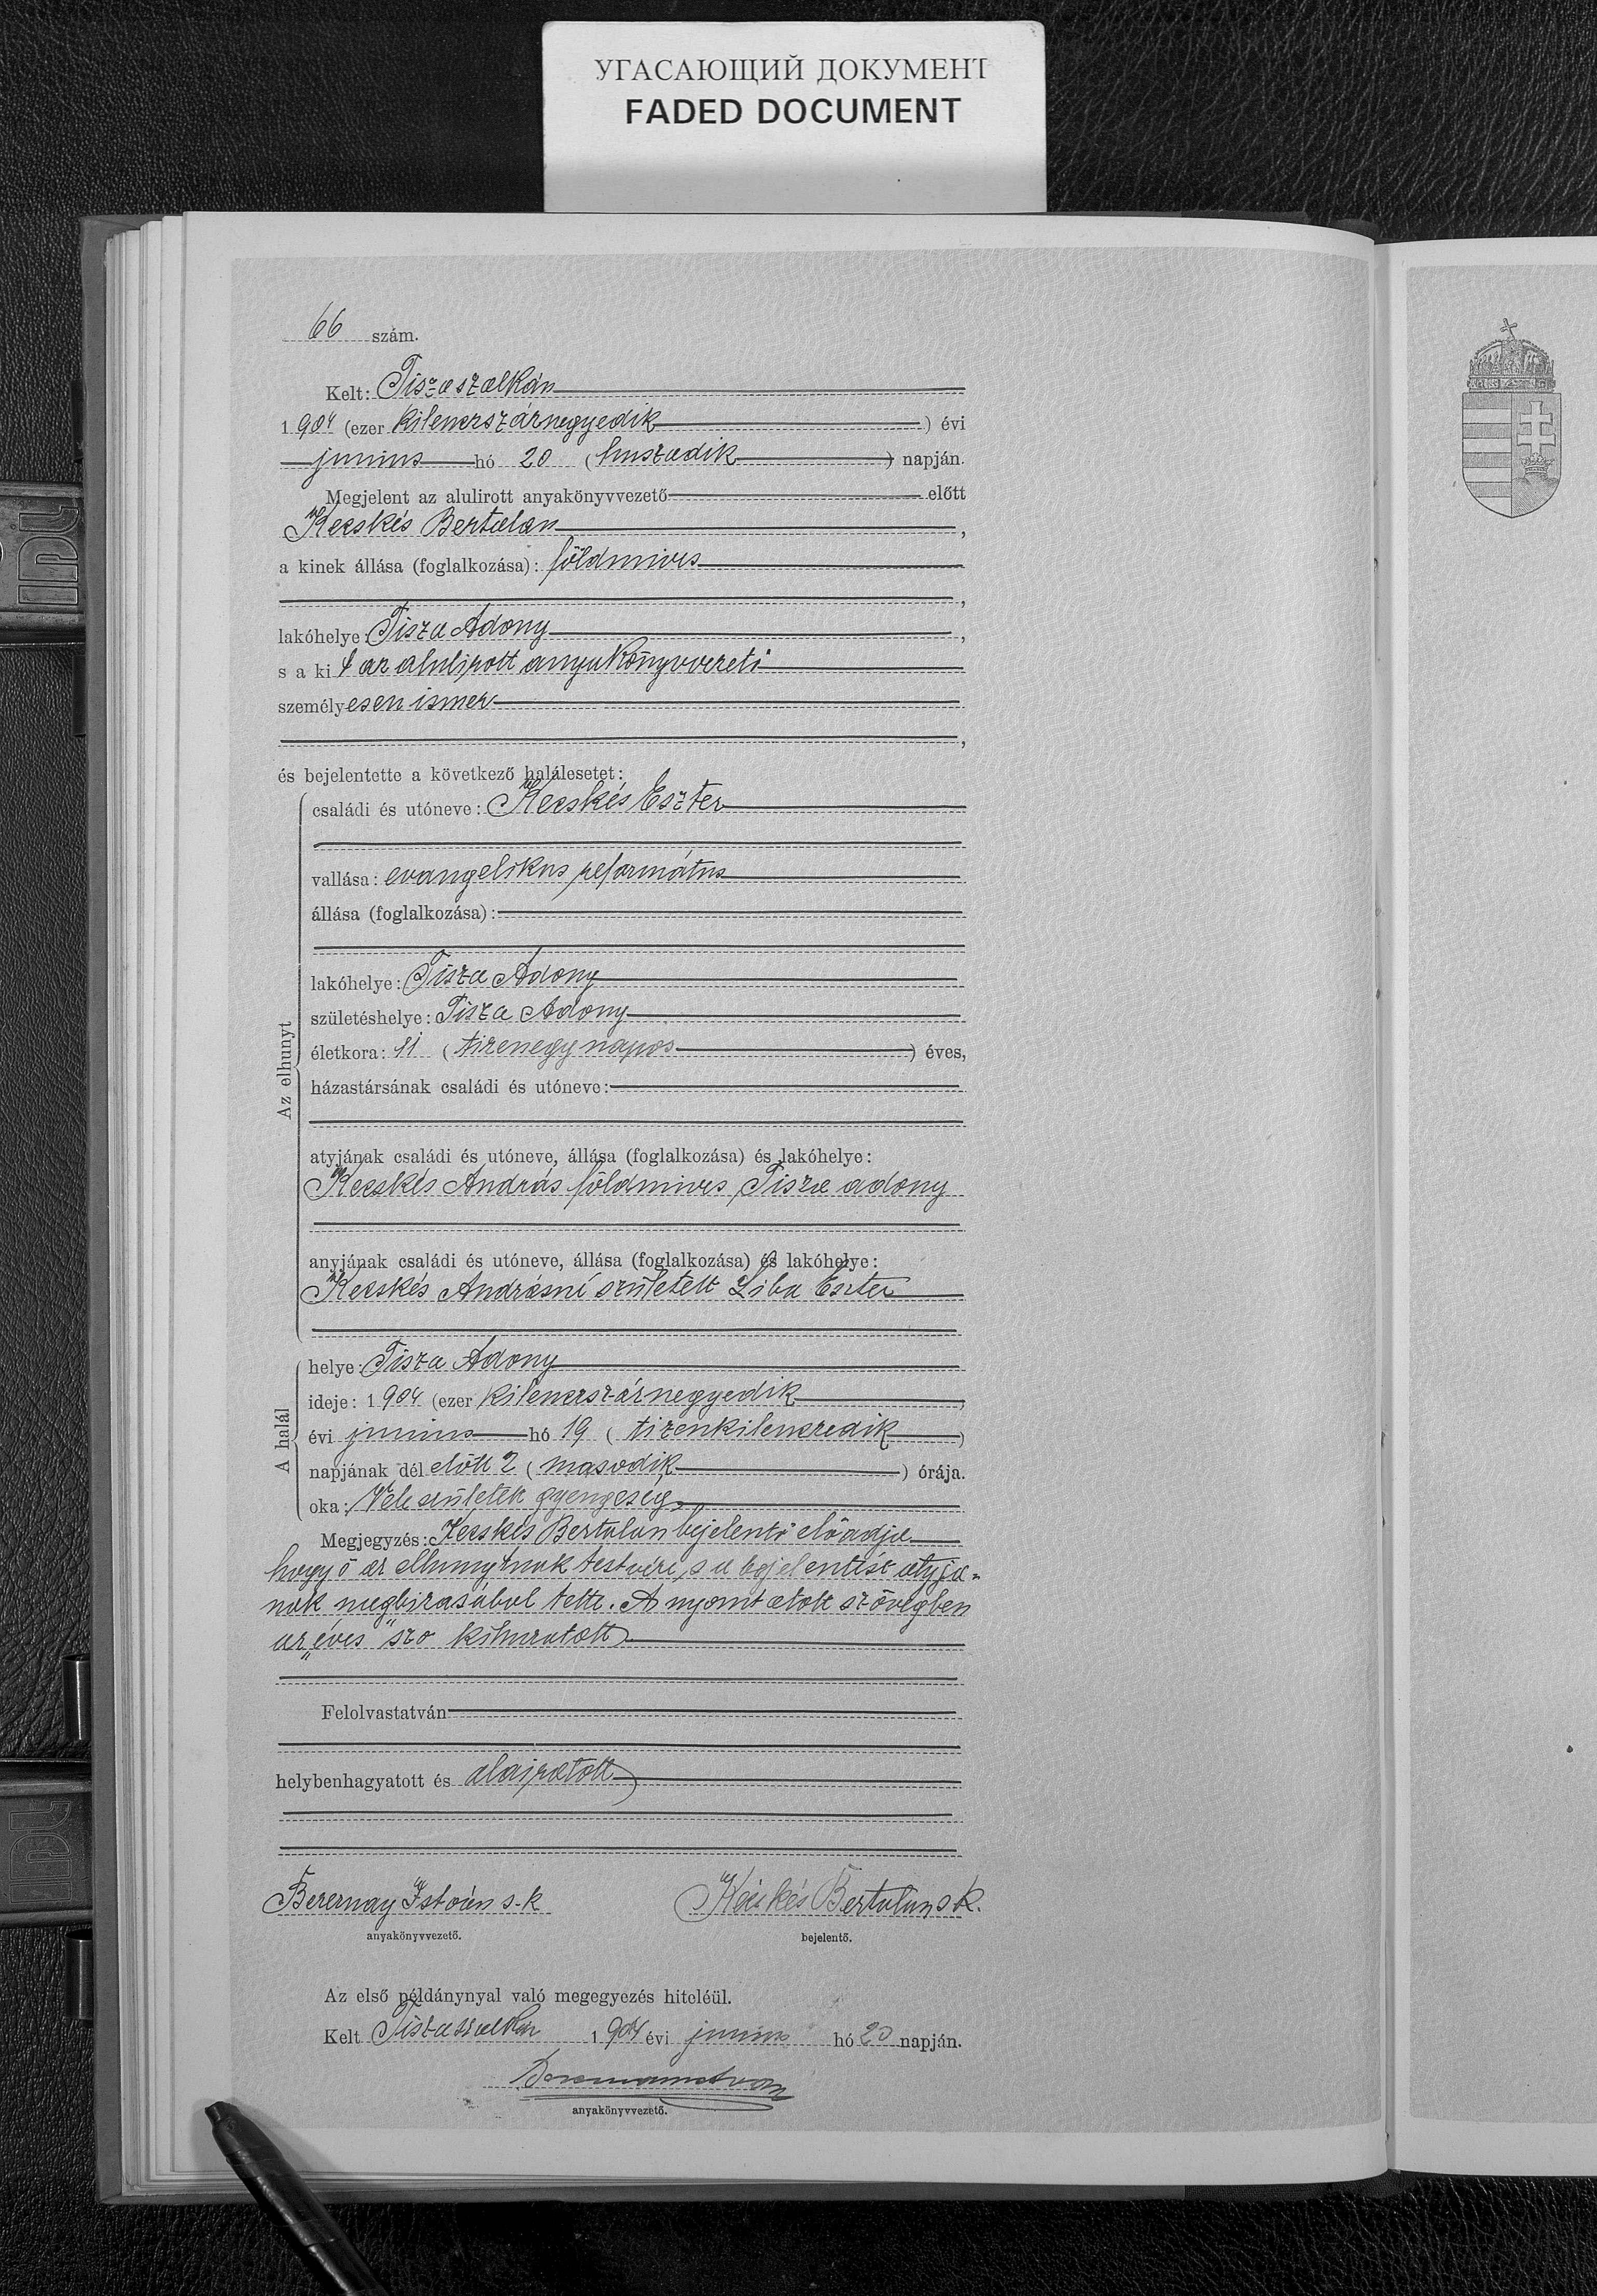 УГАСАЮЩИЙ ДОКУМЕНТ
FADED DOCUMENT
66 szám.
Kelt: Tiszaszalkán
1904 (ezer kilenczszáznegyedik) évi
junius hó 20 (huszadik) napján.
Megjelent az alulirott anyakönyvvezető előtt
Kecskés Bertalan,
a kinek állása (foglalkozása): földmives
,
lakóhelye: Tisza Adony,
s a kit az alulirott anyakönyvvezető
személyesen ismer
,
és bejelentette a következő halálesetet:
Az elhunyt
családi és utóneve: Kecskés Eszter
vallása: evangelikus református
állása (foglalkozása):
lakóhelye: Tisza Adony
születéshelye: Tisza Adony
életkora: 11 (tizenegy napos) éves,
házastársának családi és utóneve:
atyjának családi és utóneve, állása (foglalkozása) és lakóhelye:
Kecskés András földmives Tisza adony
anyjának családi és utóneve, állása (foglalkozása) és lakóhelye:
Kecskés Andrásné született Liba Eszter
A halál
helye: Tisza Adony
ideje: 1904 (ezer kilenczszáznegyedik,
évi junius hó 19 (tizenkilenczedik)
napjának dél előtt 2 (masodik) órája.
oka: Vele született gyengeség
Megjegyzés: Kecskés Bertalan bejelentő előadja
hogy ő az elhunytnak testvére, s a bejelentést atyjá-
nak megbizásábol tette. A nyomtatott szövegben
az „éves" szo kihuzatott
Felolvastatván
helybenhagyatott és aláiratott
Berernay István s.k Kecskés Bertalan s k.
anyakönyvvezető. bejelentő.
Az első példánynyal való megegyezés hiteléül.
Kelt Tiszaszalkán 1904 évi junius hó 20 napján.
anyakönyvvezető.